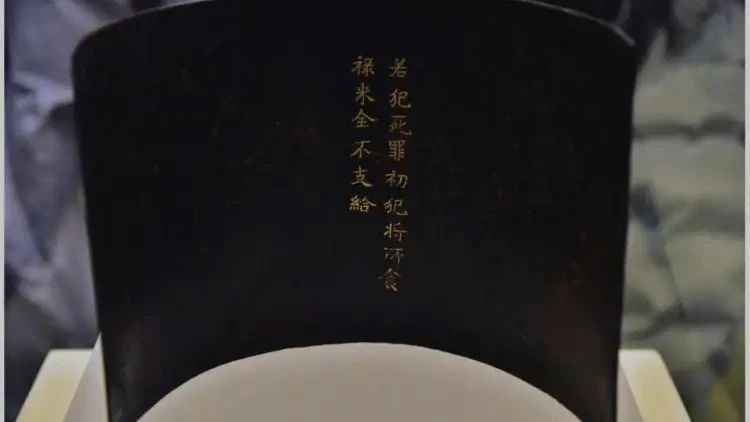 若犯死罪初犯将所食
禄米全不支給